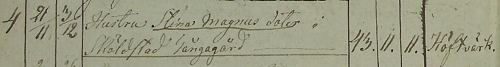 4 21/11 3/12 Hustru Stina Magnus doter i
Sköldstad Långagård 43. 11. 11. Höftvärk.